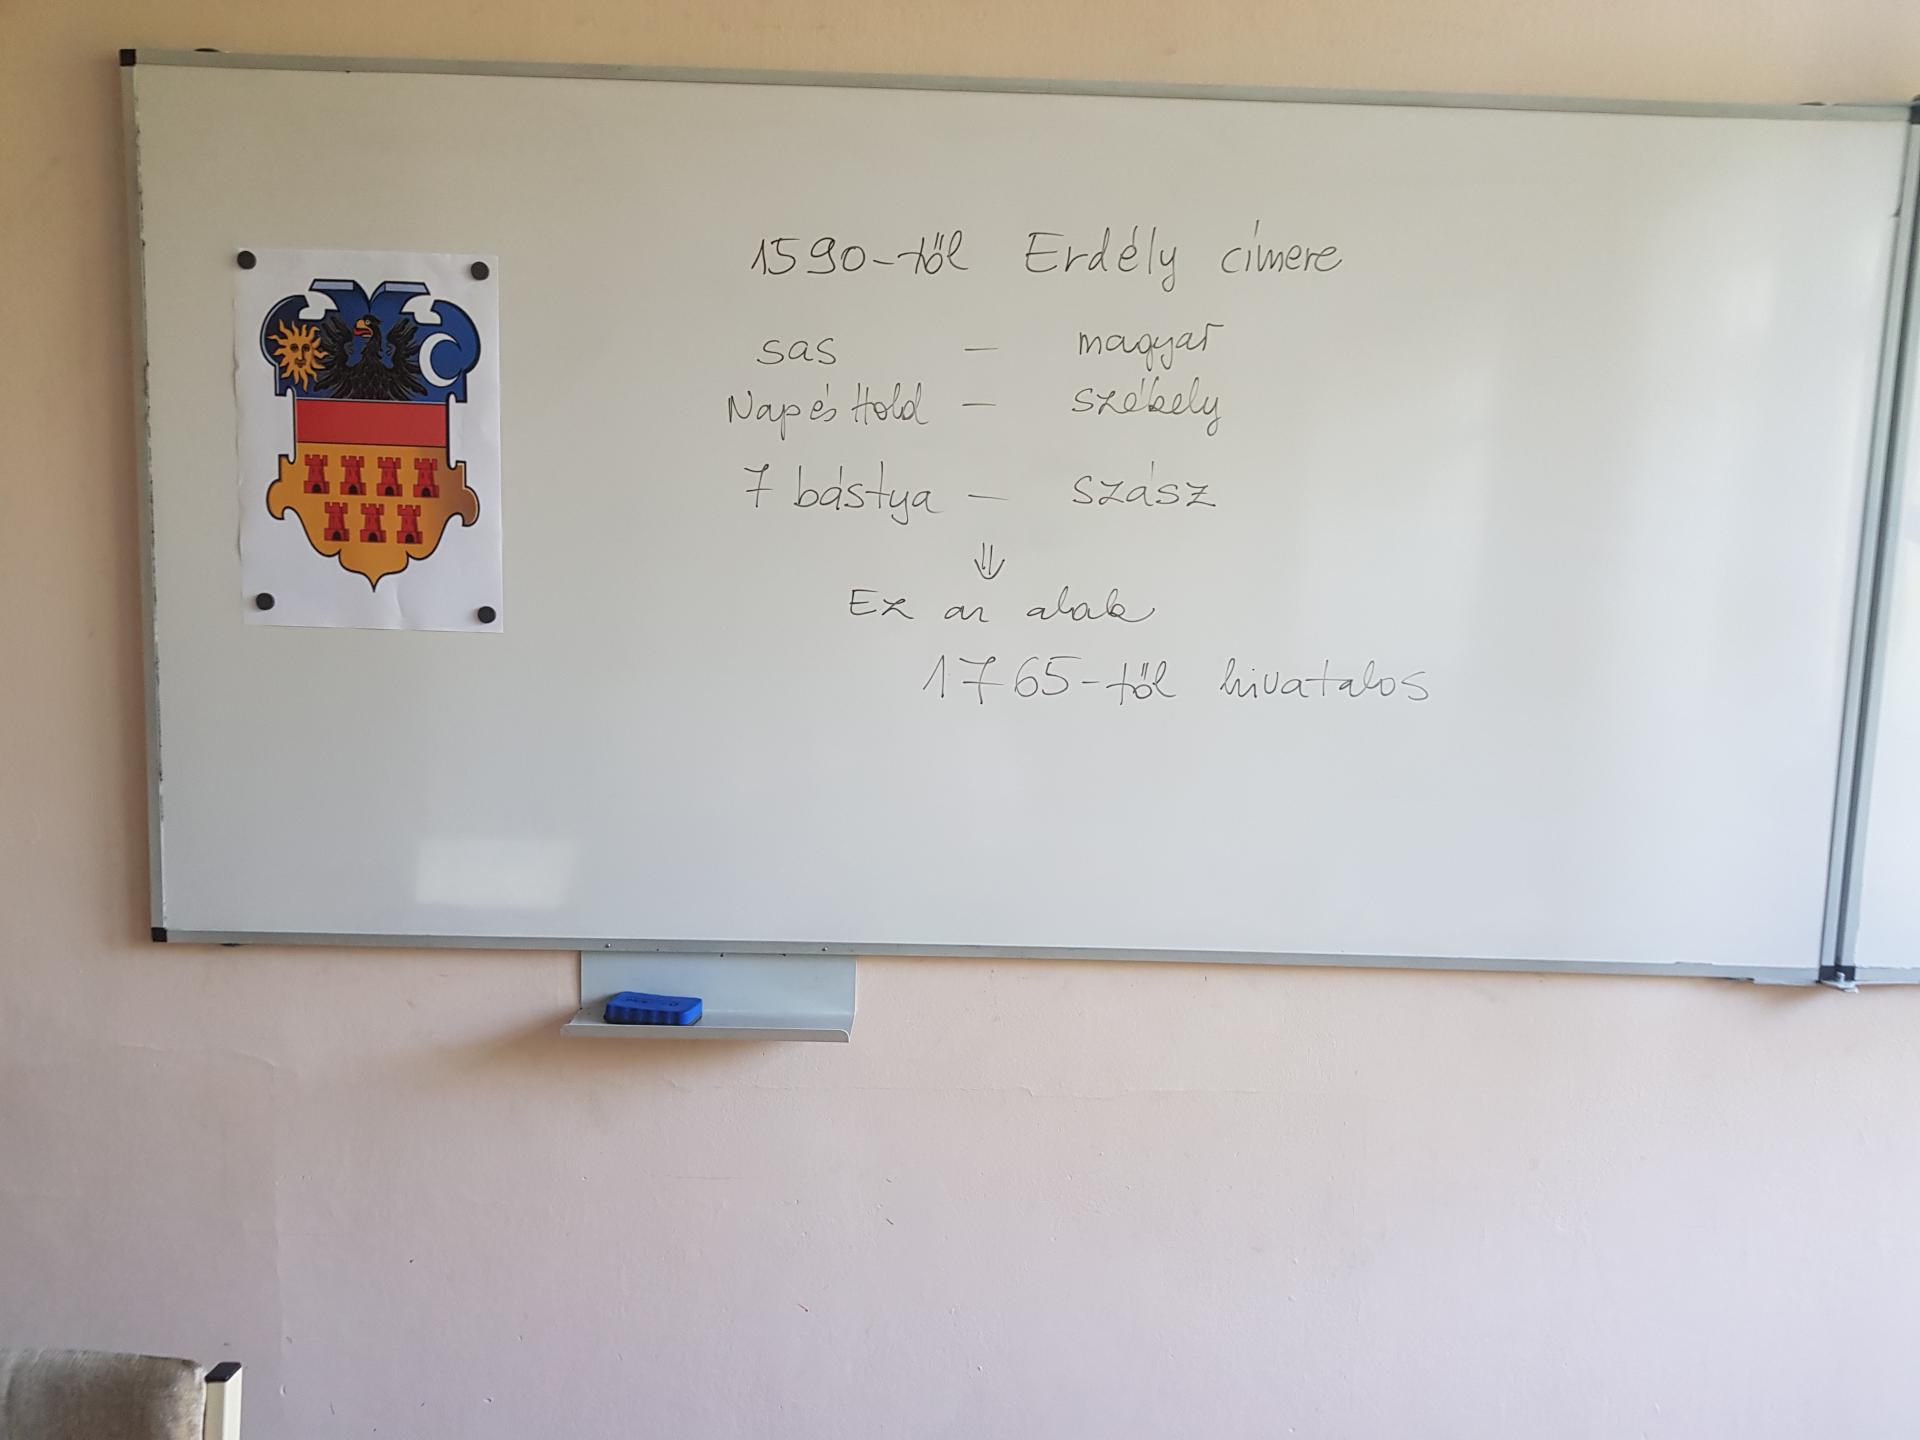 1590-től Erdély címere
sas – magyar
Nap és Hold – székely
7 bástya – szász
⇓
Ez az alak
1765-től hivatalos